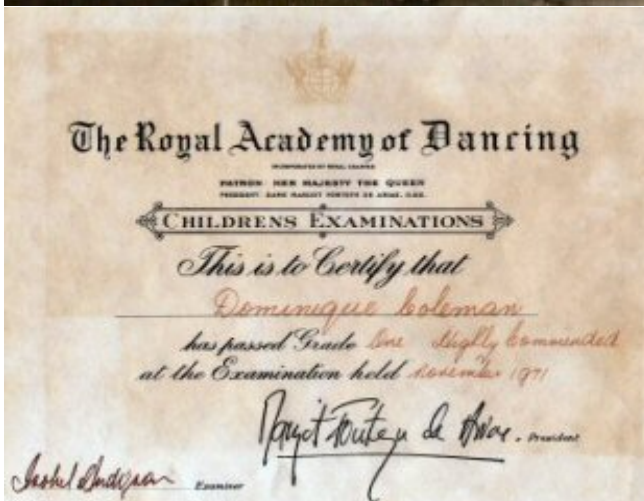 The Royal Academy of Dancing
INCORPORATED BY ROYAL CHARTER
PATRON HER MAJESTY THE QUEEN
PRESIDENT: DAME MARGOT FONTEYN DE ARIAS, D.B.E.
CHILDRENS EXAMINATIONS
This is to Certify that
Dominique Coleman
has passed Grade One Highly Commended
at the Examination held November 1971
Margot Fonteyn de Arias. President
Examiner